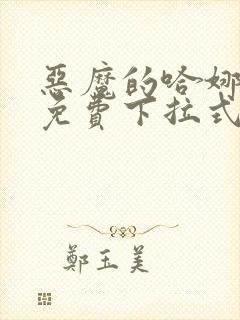 惡魔的哈娜
免費下拉式
鄭玉美